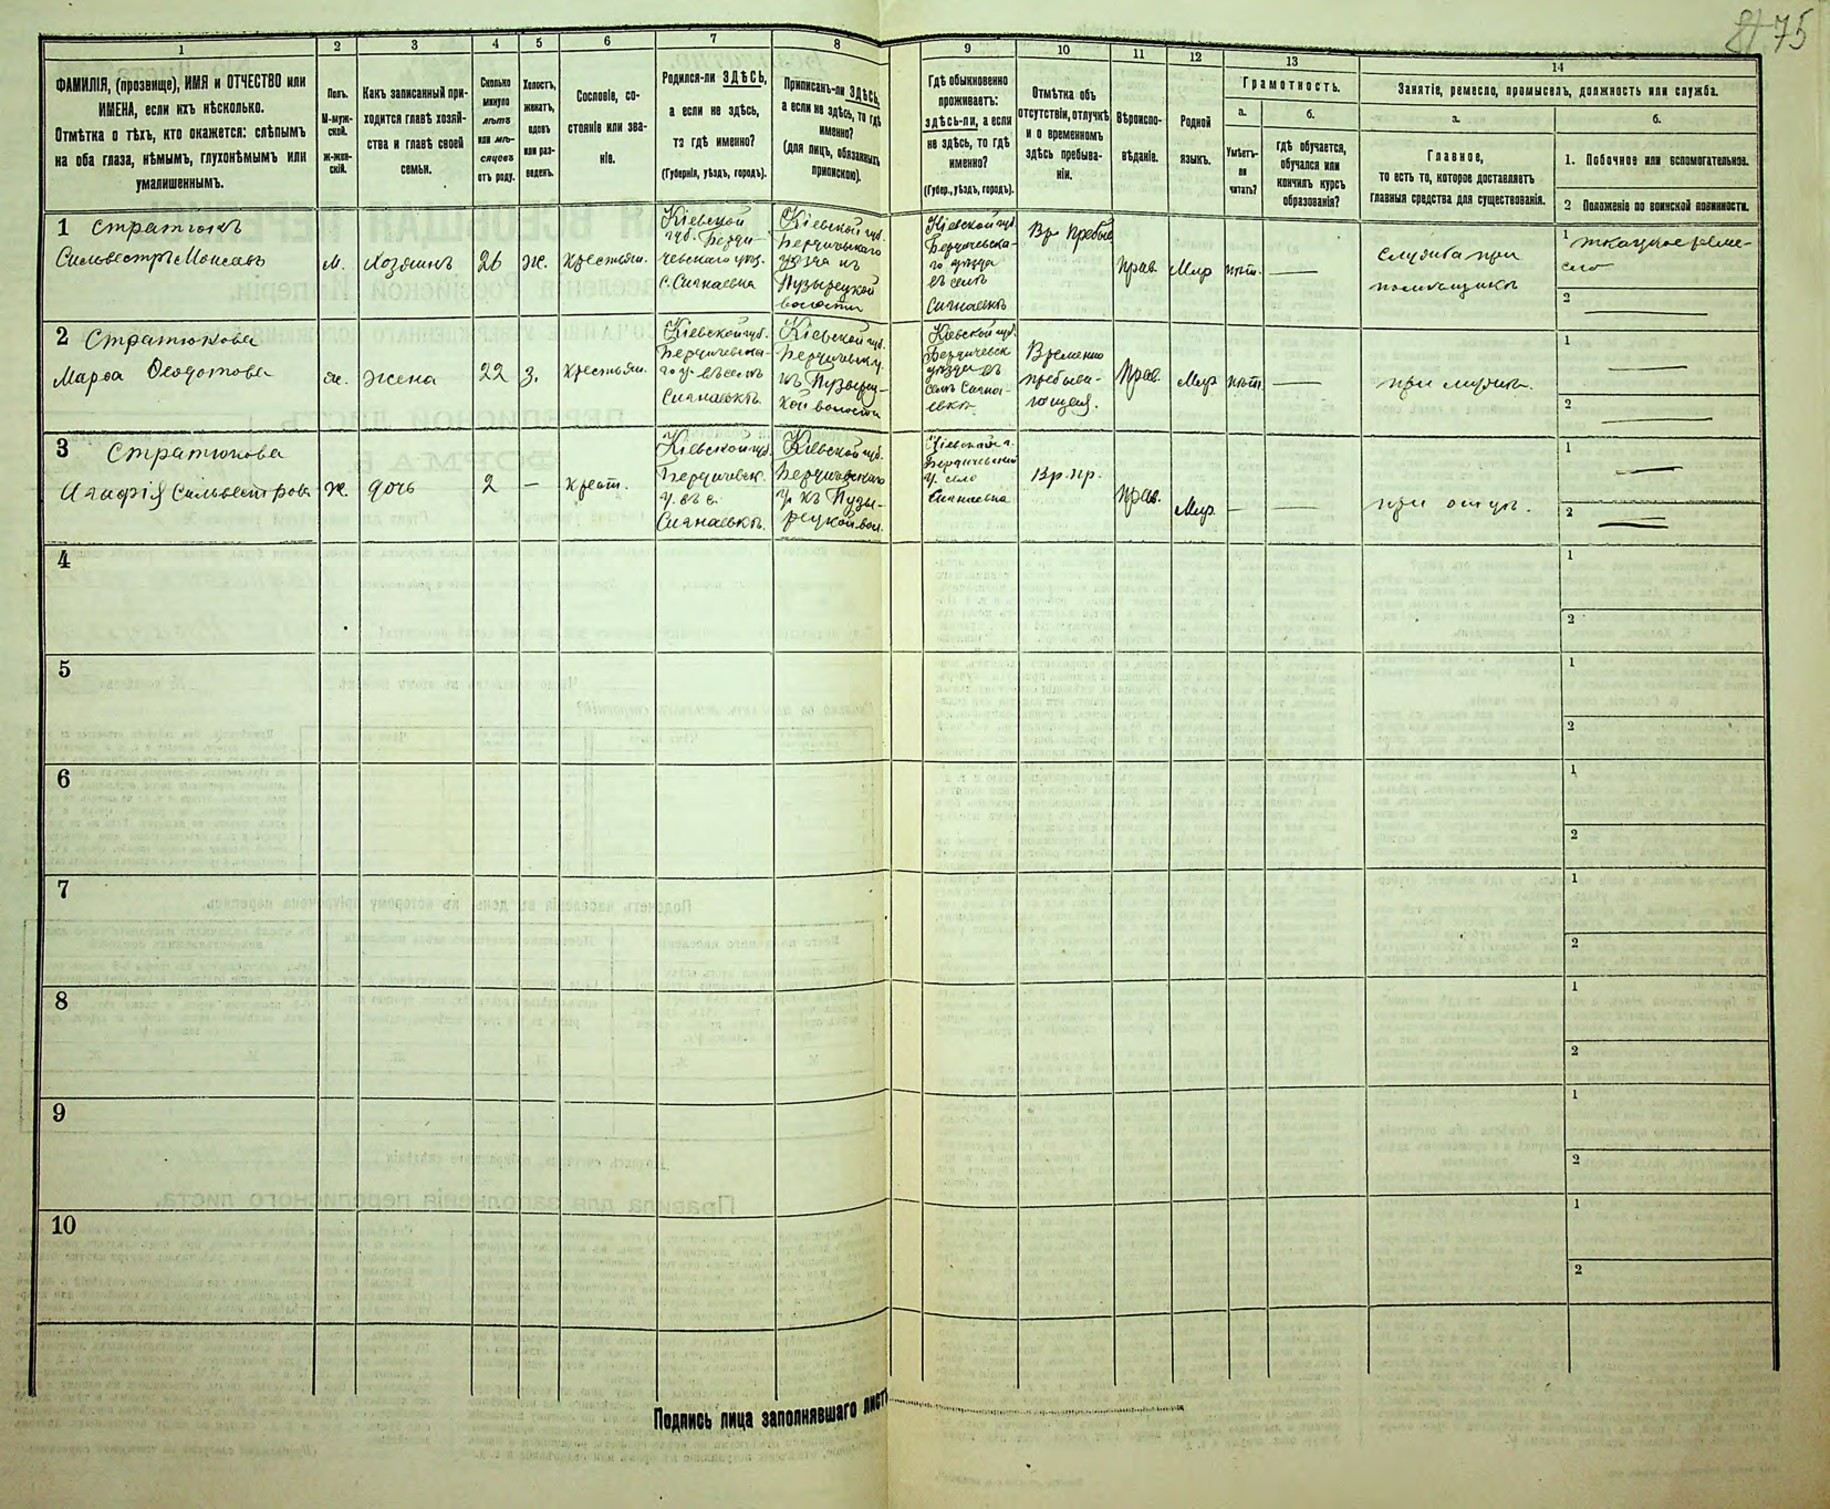 75
1 2 3 4 5 6 7 8 9 10 11 12 13 14
ФАМИЛІЯ, (прозвище), ИМЯ и ОТЧЕСТВО или
ИМЕНА, если ихъ нѣсколько.
Отмѣтка о тѣхъ, кто окажется: слѣпымъ
на оба глаза, нѣмымъ, глухонѣмымъ или
умалишеннымъ.
Полъ.
М-муж-
ской.
ж-жен-
скій.
Какъ записанный при-
ходится главѣ хозяй-
ства и главѣ своей
семьи.
Сколько
минуло
лѣтъ
или мѣ-
сяцевъ
отъ роду.
Холостъ,
женатъ,
вдовъ
или раз-
веденъ.
Сословіе, со-
стояніе или зва-
ніе.
Родился-ли ЗДѢСЬ,
а если не здѣсь,
то гдѣ именно?
(Губернія, уѣздъ, городъ).
Приписанъ-ли ЗДѢСЬ,
а если не здѣсь, то гдѣ
именно?
(для лицъ, обязанныхъ
припискою).
Гдѣ обыкновенно
проживаетъ:
здѣсь-ли, а если
не здѣсь, то гдѣ
именно?
(Губер., уѣздъ, городъ).
Отмѣтка объ
отсутствіи, отлучкѣ
и о временномъ
здѣсь пребыва-
ніи.
Вѣроиспо-
вѣданіе.
Родной
языкъ.
Грамотность.
а.
Умѣетъ-
ли
читать?
б.
гдѣ обучается,
обучался или
кончилъ курсъ
образованія?
Занятіе, ремесло, промыселъ, должность или служба.
а.
Главное,
то есть то, которое доставляетъ
главныя средства для существованія.
б.
1. Побочное или вспомогательное.
2 Положеніе по воинской повинности.
1 Стратюкъ
Сильвестръ Моисеевъ
м.
хозяинъ
26
ж.
крестьян.
Кіевской
губ. Берди-
чевскаго уѣз.
с. Сигнаевка
Кіевской губ.
Бердичевскаго
уѣзда къ
Пузырецкой
волости
Кіевской губ.
Бердичевска-
го уѣзда
въ селѣ
Сигнаевкѣ
Вр. пребыв
прав.
Млр
нѣт.
служба при
помѣщикѣ
1 ткацкое реме-
сло
2
2 Стратюкова
Марѳа Ѳеодотова
ж.
жена
22
з.
крестьян.
Кіевской губ.
Бердичевска-
го у. въ селѣ
Сигнаевкѣ
Кіевской губ.
Бердичевск. у.
къ Пузырец-
кой волости
Кіевской губ.
Бердичевск
уѣзда въ
селѣ Сигна-
евкѣ
Временно
пребыва-
ющая.
Прав.
Млр
нѣт
при мужѣ.
1
2
3 Стратюкова
Агафія Сильвестрова
ж.
дочь
2
крест.
Кіевской губ.
Бердичевск.
у. въ с.
Сигнаевкѣ.
Кіевской губ.
Бердичевскаго
у. къ Пузы-
рецкой вол.
Бердичевский
у. село
Сигнаевка
Вр. пр.
прав.
Млр.
при отцѣ.
1
2
4
1
2
5
1
2
6
1
2
7
1
2
8
1
2
9
1
2
10
1
2
Подпись лица заполнявшаго листъ